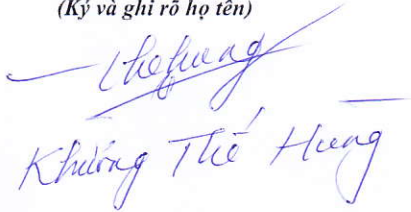 (Ký và ghi rõ họ tên)
thehung
Khương Thế Hùng